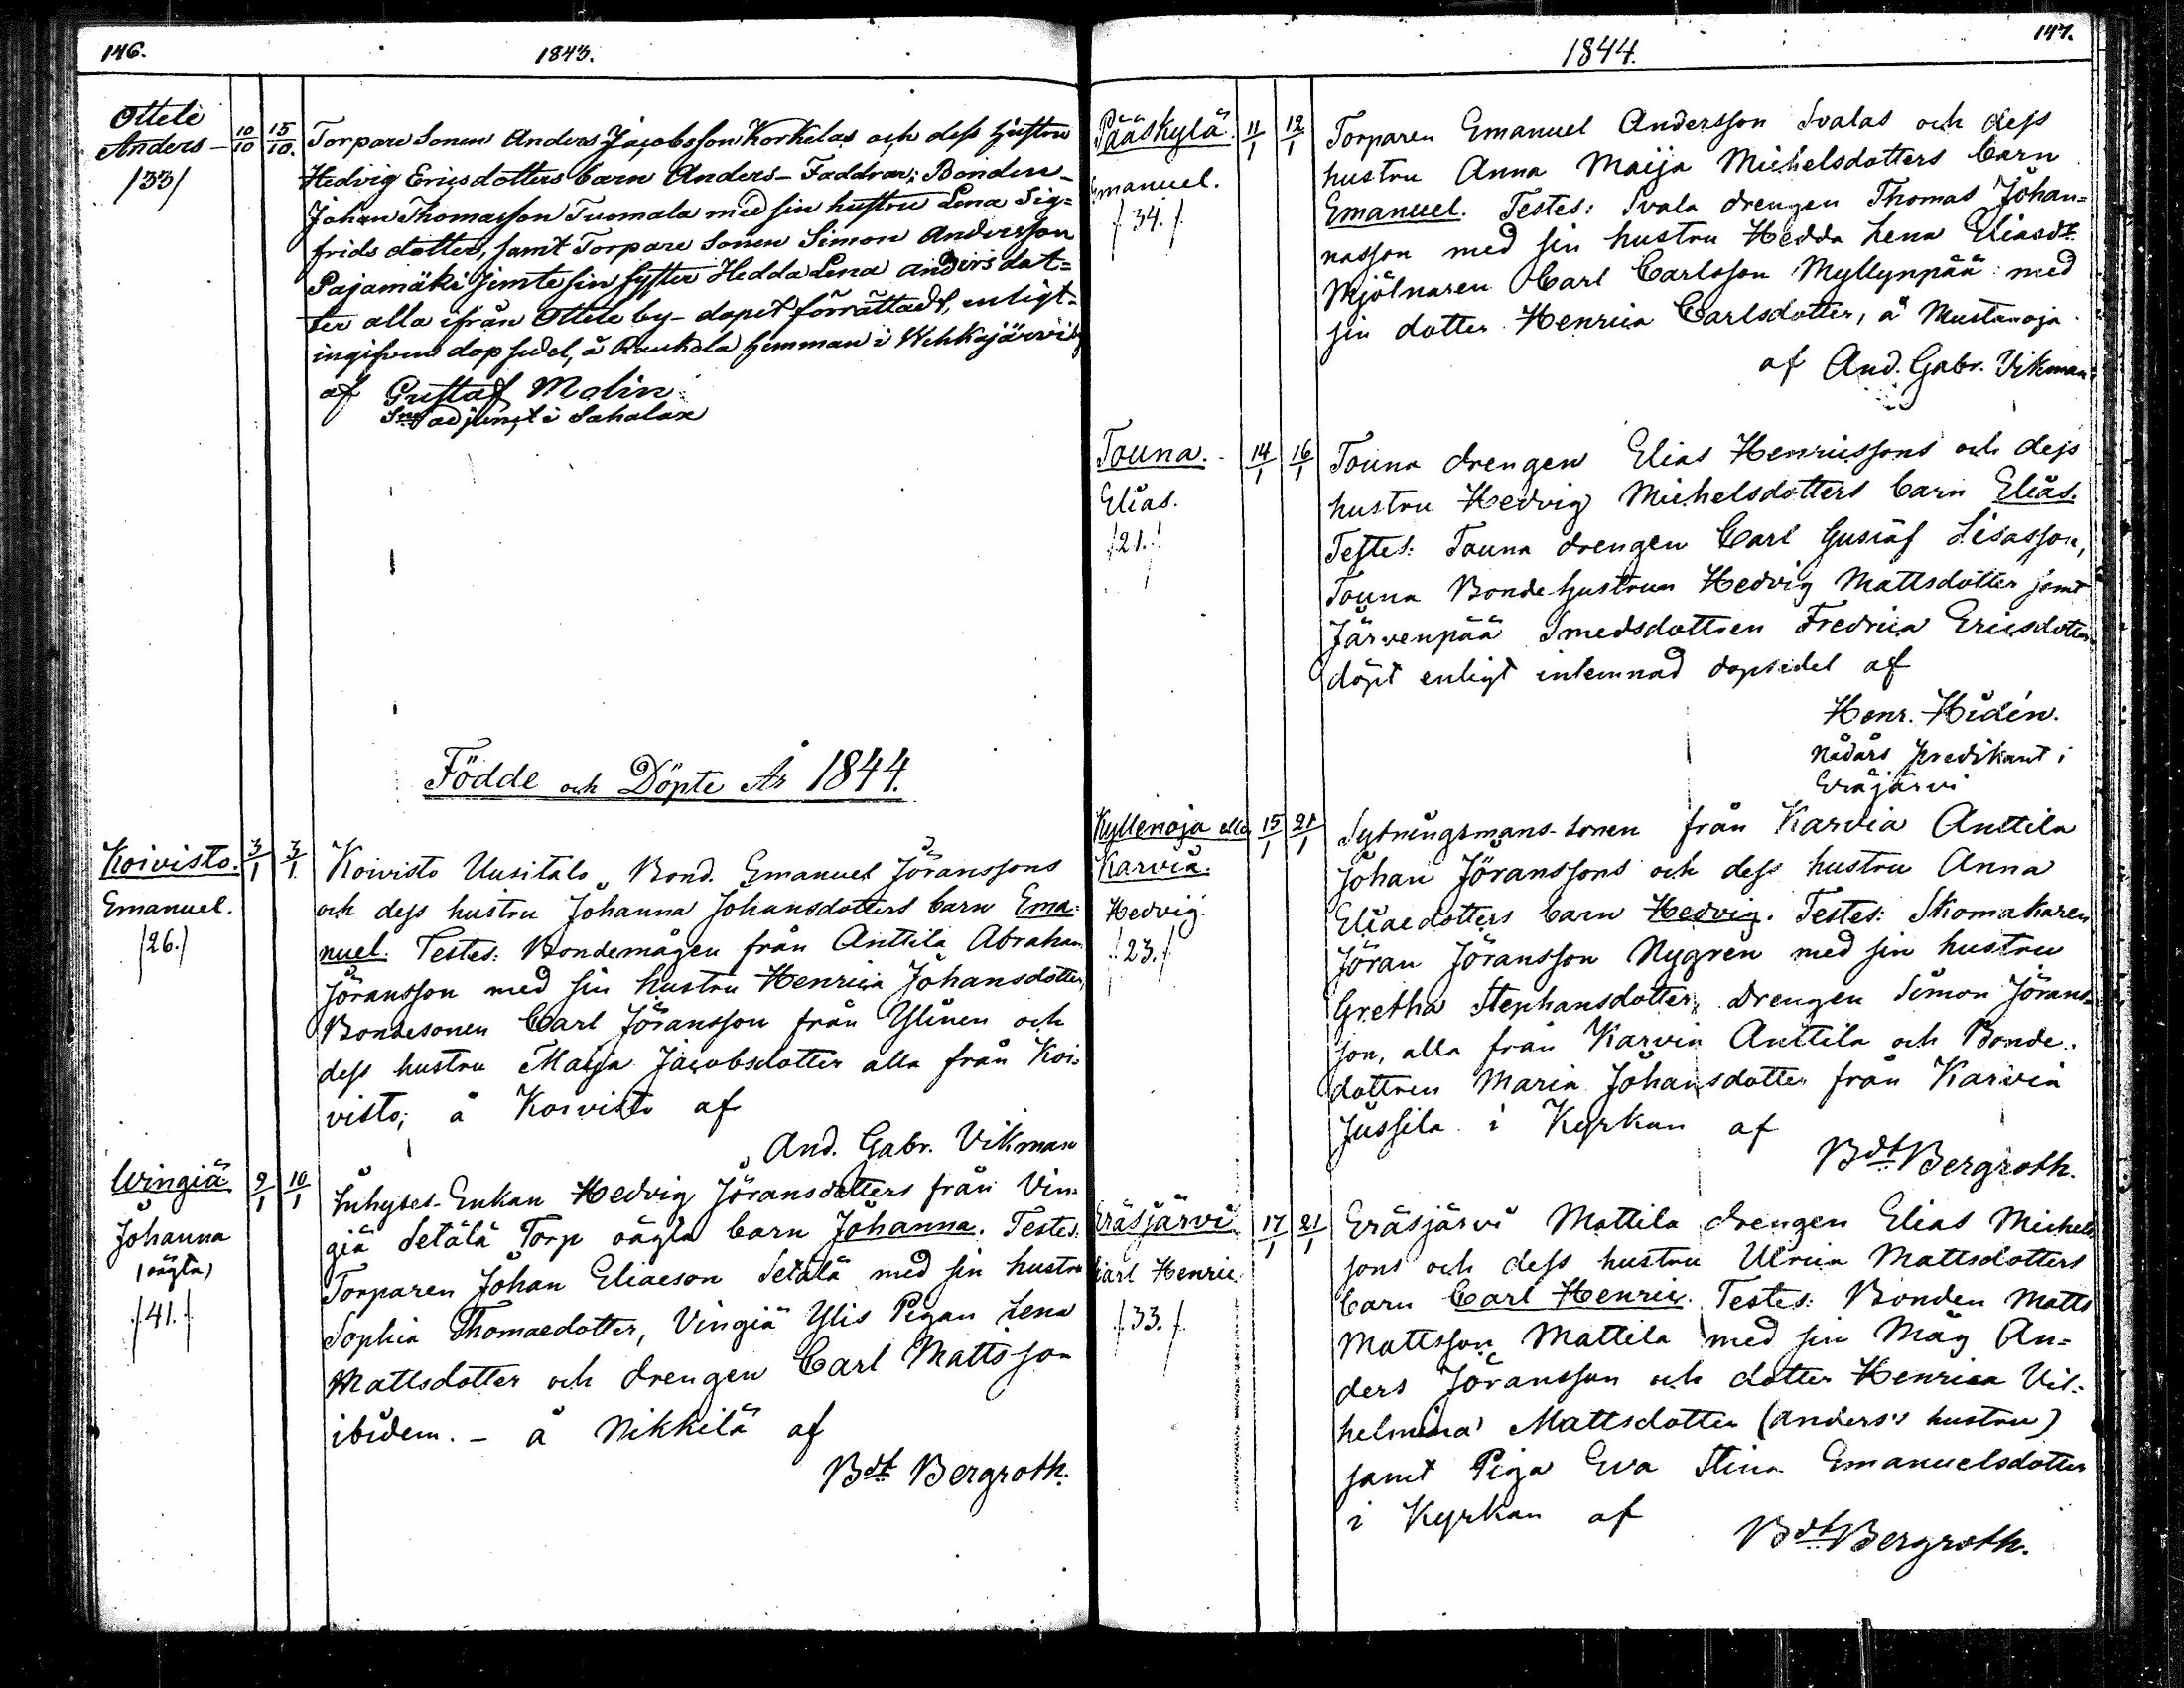 146.
1843.
Ottele
Anders —
/33/
10/10
15/10.
Torpare Sonen Anders Jacobsson Korkelas och dess hustru
Hedvig Ericsdotters barn Anders – Faddrar: Bonden –
Johan Thomasson Tuomala med sin hustru Lena Sig=
frids dotter, samt Torpare Sonen Simon Andersson
Pajamäki jemte sin syster Hedda Lena anders dot=
ter alla ifrån Ottele by – dopet förrättadt, enligt
ingifven dopsedel, å Raukola hemman i Wehkajärvi by
af Gustaf Malin
Sne adjunct i Sahalax
Födde och Döpte År 1844.
Koivisto.
Emanuel.
/26./
3/1
3/1.
Koivisto Uusitalo Bond. Emanuel Jöranssons
och dess hustru Johanna Johansdotters barn Ema=
nuel. Testes: Bondemågen från Anttila Abraham
Jöransson med sin hustru Henrica Johansdotter,
Bondesonen Carl Jöransson från Ylinen och
dess hustru Maija Jacobsdotter alla från Koi=
visto; å Koivisto af
And. Gabr. Vikman
Wingiä
Johanna
(oägta)
/41./
9/1
10/1
Inhyses-Enkan Hedvig Jöransdotters från Vin=
giä Setälä Torp oägta barn Johanna. Testes:
Torparen Johan Eliaeson Setälä med sin hustru
Sophia Thomaedotter, Vingiä Ylis Pigan Lena
Mattsdotter och drengen Carl Mattsson
ibidem. – å Nikkilä af
Bdt Bergroth.
1844.
147.
Pääskylä
Emanuel.
/34./
11/1
12/1
Torparen Emanuel Andersson Svalas och dess
hustru Anna Maija Michelsdotters barn
Emanuel. Testes: Svala drengen Thomas Johan=
nasson med sin hustru Hedda Lena Eliasdr
Mjölnaren Carl Carlsson Myllynpää med
sin dotter Henrica Carlsdotter, å Mustanoja
af And. Gabr. Vikman
Touna.
Elias.
/21./
14/1
16/1
Touna drengen Elias Henricssons och dess
hustru Hedvig Michelsdotters barn Elias.
Testes: Touna drengen Carl Gustaf Lisasson,
Touna Bondehustrun Hedvig Mattsdotter samt
Järvenpää Smedsdottren Fredrica Ericsdotter
döpt enligt inlemnad dopsedel af
Henr. Hidén.
Nådårs predikant i
Eräjärvi
Kyllenoja eller
Karvia.
Hedvig.
/23./
15/1
21/1
Sytningsmans-sonen från Karvia Anttila
Johan Jöranssons och dess hustru Anna
Eliaedotters barn Hedvig. Testes: Skomakaren
Jöran Jöransson Nygren med sin hustru
Gretha Stephansdotter, drengen Simon Jörans=
son, alla från Karvia Anttila och Bonde=
dottren Maria Johansdotter från Karvia
Jussila i Kyrkan af
Bdt Bergroth.
Eräsjärvi
Carl Henric
/33./
17/1
21/1
Eräsjärvi Mattila drengen Elias Michels
sons och dess hustru Ulrica Mattsdotters
barn Carl Henric. Testes: Bonden Matts
Mattsson Mattila med sin Måg An=
ders Jöransson och dotter Henrica Vil=
helmina Mattsdotter (Anders's hustru)
samt Piga Eva Stina Emanuelsdotter
i Kyrkan af
Bdt Bergroth.